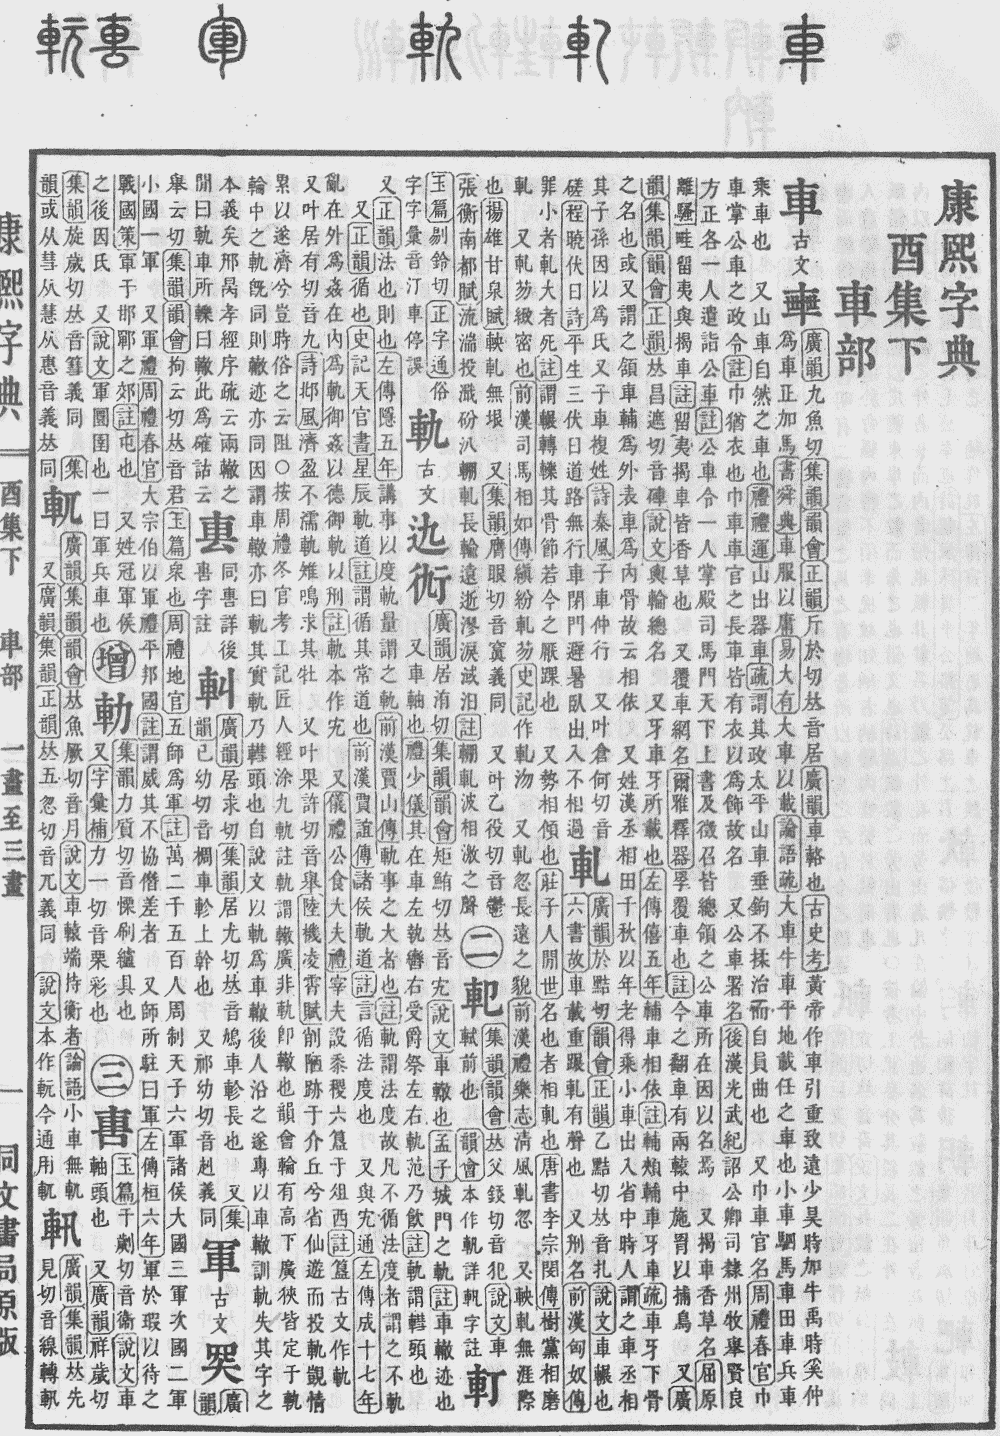 康熙字典
酉集下
車部
車 古文
廣韻九魚切集韻韻會正韻斤於切𠀤音居廣韻車輅也古史考黃帝作車引重致遠少昊時加牛禹時奚仲
爲車正加馬書舜典車服以庸易大有大車以載論語疏大車牛車平地載任之車也小車駟馬車田車兵車
乘車也 又山車自然之車也禮禮運山出器車疏謂其政太平山車垂鉤不揉治而自員曲也 又巾車官名周禮春官巾
車掌公車之政令註巾猶衣也巾車車官之長車皆有衣以爲飾故名 又公車署名後漢光武紀詔公卿司隸州牧舉賢良
方正各一人遣詣公車註公車令一人掌殿司馬門天下上書及徵召皆總領之公車所在因以名焉 又揭車香草名屈原
離騷畦留夷與揭車註留夷揭車皆香草也 又覆車網名爾雅釋器罦覆車也註今之翻車有兩轅中施罥以捕鳥 又廣
韻集韻韻會正韻𠀤昌遮切音硨說文輿輪總名 又牙車牙所載也左傳僖五年輔車相依註輔頰輔車牙車疏車牙下骨
之名也或又謂之頷車輔爲外表車爲內骨故云相依 又姓漢丞相田千秋以年老得乘小車出入省中時人謂之車丞相
其子孫因以爲氏又子車複姓詩秦風子車仲行 又叶倉何切音
磋程曉伏日詩平生三伏日道路無行車閉門避暑臥出入不相過
軋
廣韻於黠切韻會正韻乙黠切𠀤音扎說文車輾也
六書故車載重蹍軋有聲也 又刑名前漢匈奴傳
罪小者軋大者死註謂輾轉轢其骨節若今之厭踝也 又勢相傾也莊子人閒世名也者相軋也唐書李宗閔傳樹黨相磨
軋 又軋芴緻密也前漢司馬相如傳縝紛軋芴史記作軋沕 又軋忽長遠之貌前漢禮樂志清風軋忽 又軮軋無涯際
也揚雄甘泉賦軮軋無垠 又集韻膺眼切音義同 又叶乙役切音鬱
張衡南都賦流湍投濈砏汃輣軋長輪遠逝漻淚淢汨註輣軋波相激之聲
二
集韻韻會𠀤父鋄切音犯說文車
軾前也 韻會本作軓詳軓字註
玉篇剔鈴切正字通俗
字字彙音汀車停誤
軌 古文
廣韻居洧切集韻韻會矩鮪切𠀤音宄說文車轍也孟子城門之軌註車轍迹也
又車軸也禮少儀其在車左執轡右受爵祭左右軌范乃飮註軌謂轊頭也
又正韻法也則也左傳隱五年講事以度軌量謂之軌前漢賈山傳軌事之大者也註軌謂法度也故凡不循法度者謂之不軌
又正韻循也史記天官書星辰軌道註謂循其常道也前漢賈誼傳諸侯軌道註言循法度也 又與宄通左傳成十七年
亂在外爲姦在內爲軌御姦以德御軌以刑註本作宄 又儀禮公食大夫禮宰夫設黍稷六簋于俎西註簋古文作軌
又叶居有切音九詩邶風濟盈不濡軌雉鳴求其牡 又叶果許切音舉陸機凌霄賦削陋跡于介丘兮省仙遊而投軌觀情
累以遂濟兮豈時俗之云阻○按周禮冬官考工記匠人經涂九軌註軌謂轍廣非軌卽轍也韻會輪有高下廣狹皆定于軌
輪中之軌旣同則轍迹亦同因謂車轍亦曰軌其實軌乃轊頭也自說文以軌爲車轍後人沿之遂專以車轍訓軌失其字之
本義矣邢昺孝經序疏云兩轍之
閒曰軌車所轢曰轍此爲確詁云
同軎詳後
軎字註
廣韻居求切集韻居尤切𠀤音鳩車軫長也 又集
韻已幼切切音椆車軫上幹也 又祁幼切切音赳義同
軍 古文
廣韻
舉云切集韻韻會拘云切𠀤音君玉篇衆也周禮地官五師爲軍註萬二千五百人周制天子六軍諸侯大國三軍次國二軍
小國一軍 又軍禮周禮春官大宗伯以軍禮平邦國註謂威其不協僭差者 又師所駐曰軍左傳桓六年軍於瑕以待之
戰國策軍于邯鄲之郊註屯也 又姓冠軍侯
之後因氏 又說文軍圜圍也一曰軍兵車也
增
集韻力質切音慄刷纑具也
又字彙補力一切音栗彩也
三
軎
玉篇于劌切音衞說文車
軸頭也 又廣韻祥歲切
集韻旋歲切𠀤音篲義同 集
韻或从彗从慧从惠音義𠀤同
軏
廣韻集韻韻會𠀤魚厥切音月說文車轅端持衡者論語小車無軏
又廣韻集韻正韻𠀤五忽切音兀義同 說文本作軏今通用軏
廣韻集韻𠀤先
見切音線轉軐
康熙字典 酉集下 車部 二畫至三畫 一 同文書局原版